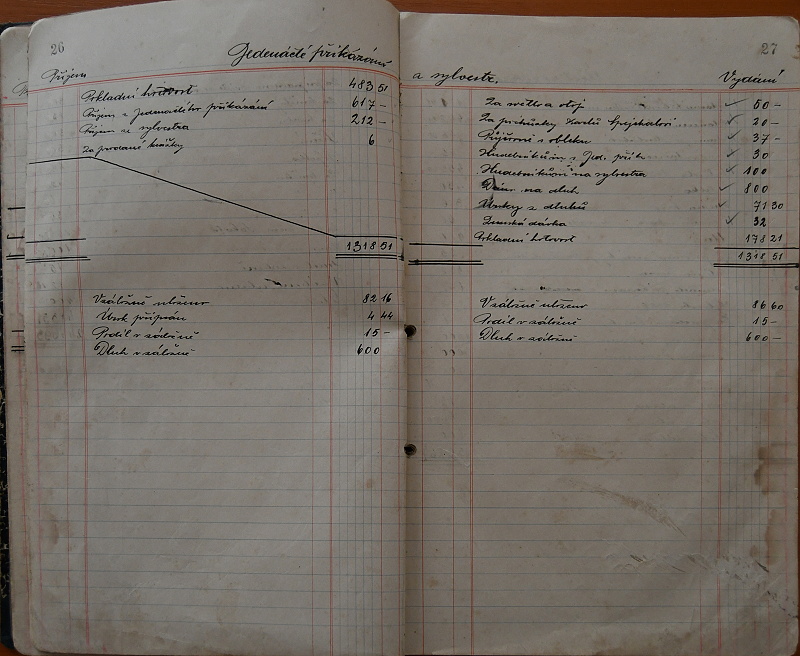 26
Jedenácté přikázání
Příjem
Pokladní hotovost 483 51
Příjem z Jedenáctého přikázání 617 –
Příjem ze sylvestra 212 –
Za prodané knížky 6
1318 51
V záložně uloženo 82 16
Úrok připsán 4 44
Podíl v záložně 15 –
Dluh v záložně 600
27
a sylvestr.
Vydání
Za světlo a otop ✓ 50 –
Za příhušky Karlu ✓ 20 –
Půjčovné z obleku ✓ 37 –
Hudebníkům z Jed. přik. ✓ 30
Hudebníkům na sylvestra ✓ 100
na dluh ✓ 800
Úroky z dluhu ✓ 71 30
Zemská dávka ✓ 32
Pokladní hotovost 178 21
1318 51
V záložně uloženo 86 60
Podíl v záložně 15 –
Dluh v záložně 600 –